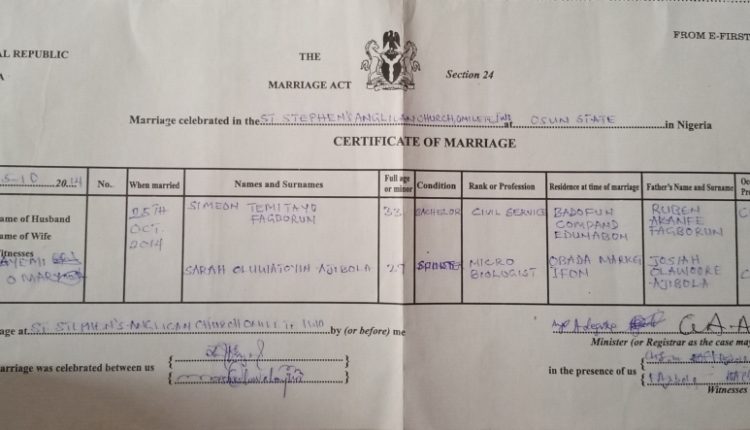 FROM E-FIRST
AL REPUBLIC
THE
MARRIAGE ACT
Section 24
Marriage celebrated in the ST STEPHEN'S ANGLICAN CHURCH OMILETE IWO at OSUN STATE in Nigeria
CERTIFICATE OF MARRIAGE
5-10 2014 No. When married Names and Surnames Full age or minor Condition Rank or Profession Residence at time of marriage Father's Name and Surname
ame of Husband 25TH OCT. 2014 SIMEON TEMITAYO FAGBORUN 33 BACHELOR CIVIL SERVICE BADOFUN COMPAND EDUNABON RUBEN AKANFE FAGBORUN
ame of Wife
itnesses
SARAH OLUWATOYIN AJIBOLA 29 SPINSTER MICRO BIOLOGIST OBADA MARKET IFON JOSIAH OLAWOORE AJIBOLA
age at ST. STEPHEN'S ANGLICAN CHURCH by (or before) me
Minister (or Registrar as the case may
arriage was celebrated between us
in the presence of us
Witnesses